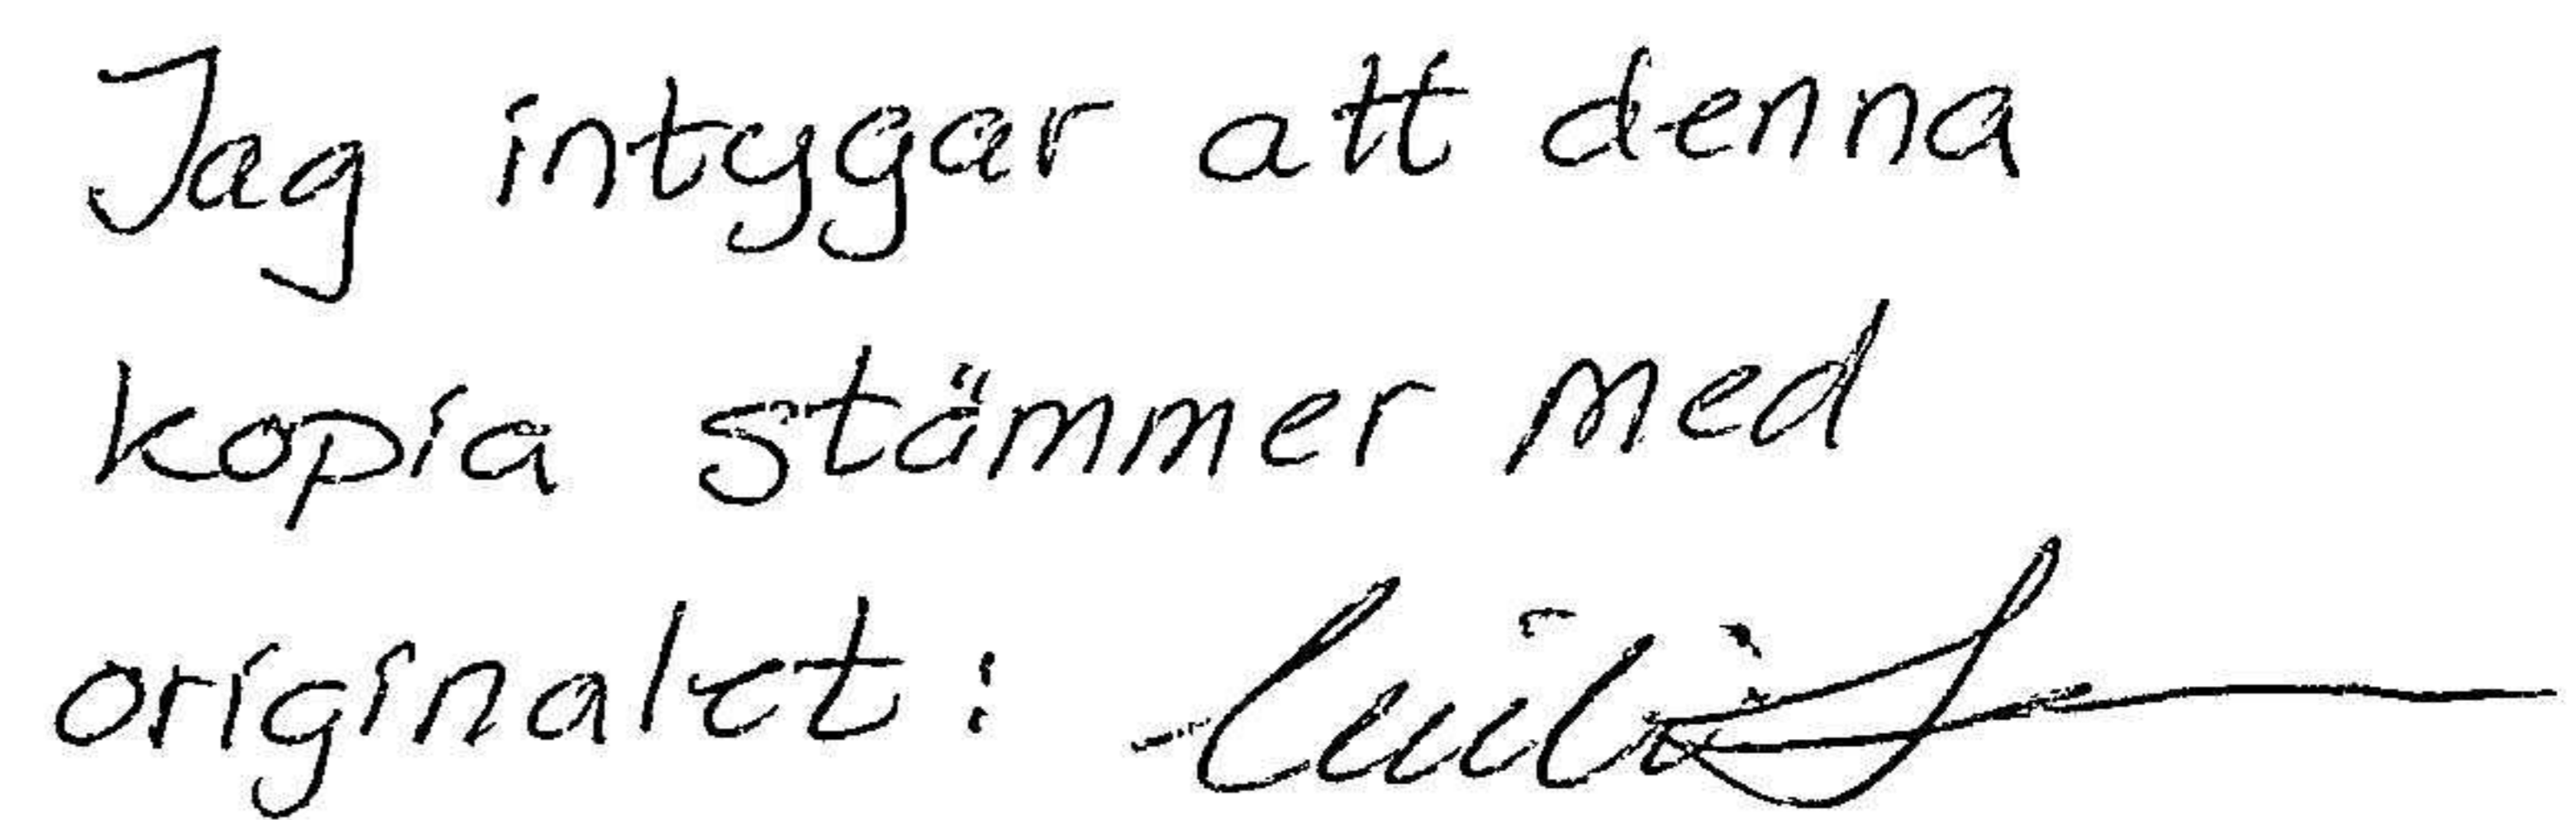 Jag intygar att denna
kopia stämmer med
originalet: